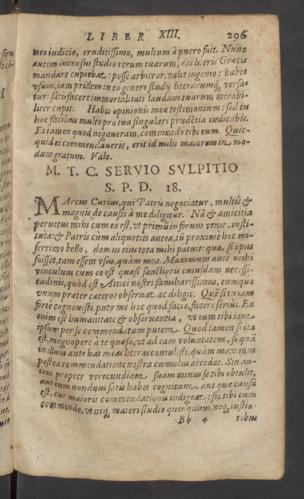 LIBER XIII. 296
meo iudicio, eruditissimo, multum à puero fuit. Nunc
autem incensus studio rerum tuarum, eas literis Græcis
mandare cupiebat: posse arbitror, valet ingenio: habet
vsum, iam pridem in eo genere studij literarumq́; versa-
tur: satisfacere immortalitati laudum tuarum mirabi-
liter cupit. Habes opinionis meæ testimonium: sed tu
hoc facilius multo pro tua singulari prudētia iudicabis.
Et tamen quod negaueram, commendo tibi eum. Quic-
quid ei commendaueris, erit id mihi maiorem in mo-
dum gratum. Vale.
M. T. C. SERVIO SVLPITIO
S. P. D. 18.
MArcus Curius, qui Patris negociatur, multis &
magnis de causis à me diligitur. Nā & amicitia
peruetus mihi cum eo est, vt primū in forum venit, insti-
tuta: & Patris cùm aliquoties antea, tū proximè hoc mi-
serrimo bello, domus eius tota mihi patuit: qua, si opus
fuisset, tam essem vsus, quàm mea. Maximum autē mihi
vinculum cum eo est quasi sanctioris cuiusdam necessi-
tudinis, quod est Attici nostri familiarissimus, eumque
vnum præter cæteros obseruat ac diligit. Quē si tu iam
fortè cognouisti, puto me hoc quod facio, facere seriùs. Ea
enim est humanitate & obseruantia, vt eum tibi iam
ipsum per se commendatum putem. Quod tamen si ita
est, magnopere à te quæso, vt ad eam voluntatem, si quā
in illum ante has meas literas contulisti, quàm maximus
postea commendatione nostra cumulus accedat. Sin au-
tem propter verecundiam suam minus se tibi obtulit,
aut eum nondum satis habes cognitum, aut quæ causa
est, cur maioris commendationis indigeat: sic tibi eum
commendo, vt neq́; maiori studio quenquam, neq́; iustio-
Bb 4 ribus